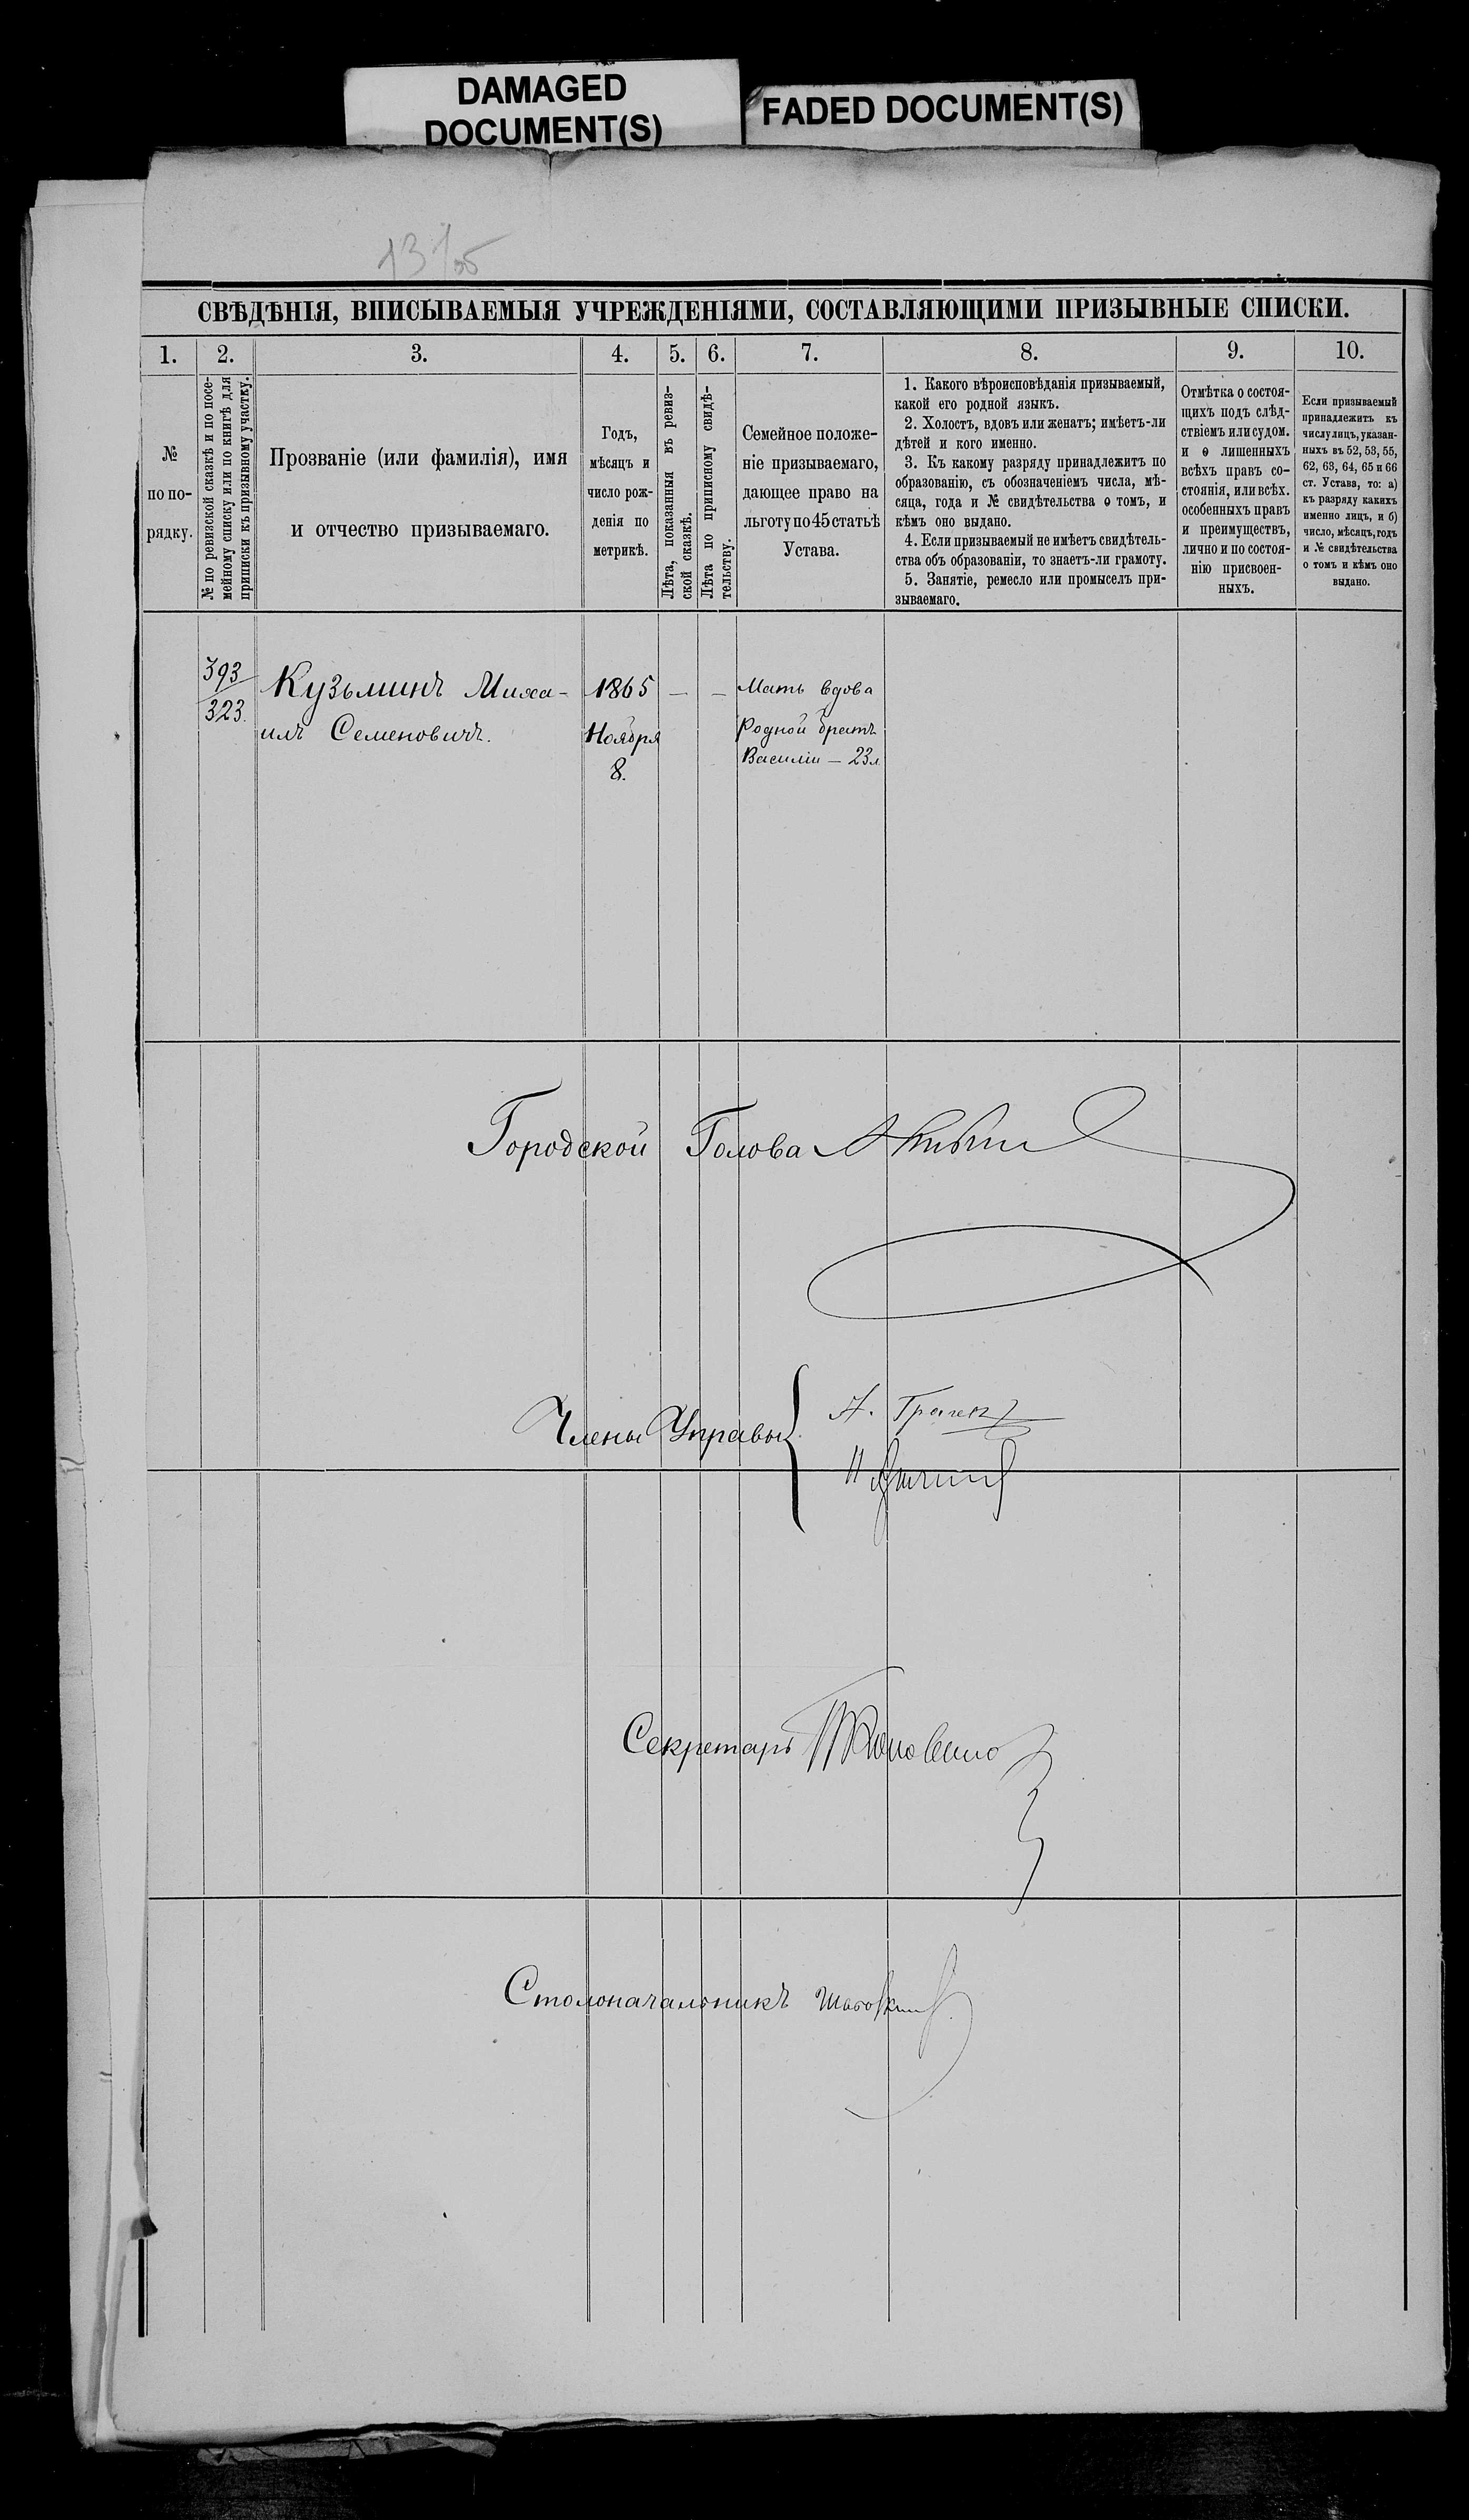 DAMAGED
DOCUMENT(S)
FADED DOCUMENT(S)
СВѢДѢНІЯ, ВПИСЫВАЕМЫЯ УЧРЕЖДЕНІЯМИ, СОСТАВЛЯЮЩИМИ ПРИЗЫВНЫЕ СПИСКИ.
1.
№
по по-
рядку.
2.
№ по ревизской сказкѣ и по посе-
мейному списку или по книгѣ для
приписки къ призывному участку.
3.
Прозваніе (или фамилія), имя
и отчество призываемаго.
4.
Годъ,
мѣсяцъ и
число рож-
денія по
метрикѣ.
5.
Лѣта, показанныя въ ревиз-
ской сказкѣ.
6.
Лѣта по приписному свидѣ-
тельству.
7.
Семейное положе-
ніе призываемаго,
дающее право на
льготу по 45 статьѣ
Устава.
8.
1. Какого вѣроисповѣданія призываемый,
какой его родной языкъ.
2. Холостъ, вдовъ или женатъ; имѣетъ-ли
дѣтей и кого именно.
3. Къ какому разряду принадлежитъ по
образованію, съ обозначеніемъ числа, мѣ-
сяца, года и № свидѣтельства о томъ, и
кѣмъ оно выдано.
4. Если призываемый не имѣетъ свидѣтель-
ства объ образованіи, то знаетъ-ли грамоту.
5. Занятіе, ремесло или промыселъ при-
зываемаго.
9.
Отмѣтка о состоя-
щихъ подъ слѣд-
ствіемъ или судом.
и о лишенныхъ
всѣхъ правъ со-
стоянія, или всѣх.
особенныхъ правъ
и преимуществъ,
лично и по состоя-
нію присвоен-
ныхъ.
10.
Если призываемый
принадлежитъ къ
числу лицъ, указан-
ныхъ въ 52, 53, 55,
62, 63, 64, 65 и 66
ст. Устава, то: а)
къ разряду какихъ
именно лицъ, и б)
число, мѣсяцъ, годъ
и № свидѣтельства
о томъ и кѣмъ оно
выдано.
393
323.
Кузьминъ Миха-
илъ Семеновичъ.
1865
Ноября
8.
—
—
Мать вдова
Родной братъ
Василій — 23 л
Городской Голова
Члены Управы
Секретарь
Столоначальникъ